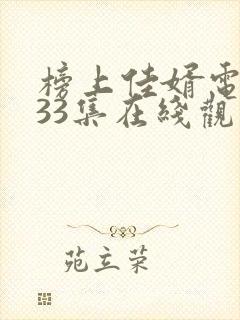 榜上佳婿電
33集在綫觀
苑立荣